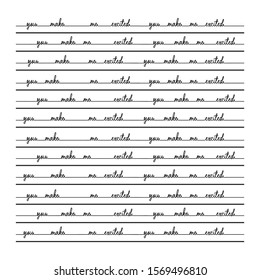 you make me excited you make me excited
you make me excited you make me excited
you make me excited you make me excited
you make me excited you make me excited
you make me excited you make me excited
you make me excited you make me excited
you make me excited you make me excited
you make me excited you make me excited
you make me excited you make me excited
you make me excited you make me excited
you make me excited you make me excited
you make me excited you make me excited
shutterstock.com · 1569496810